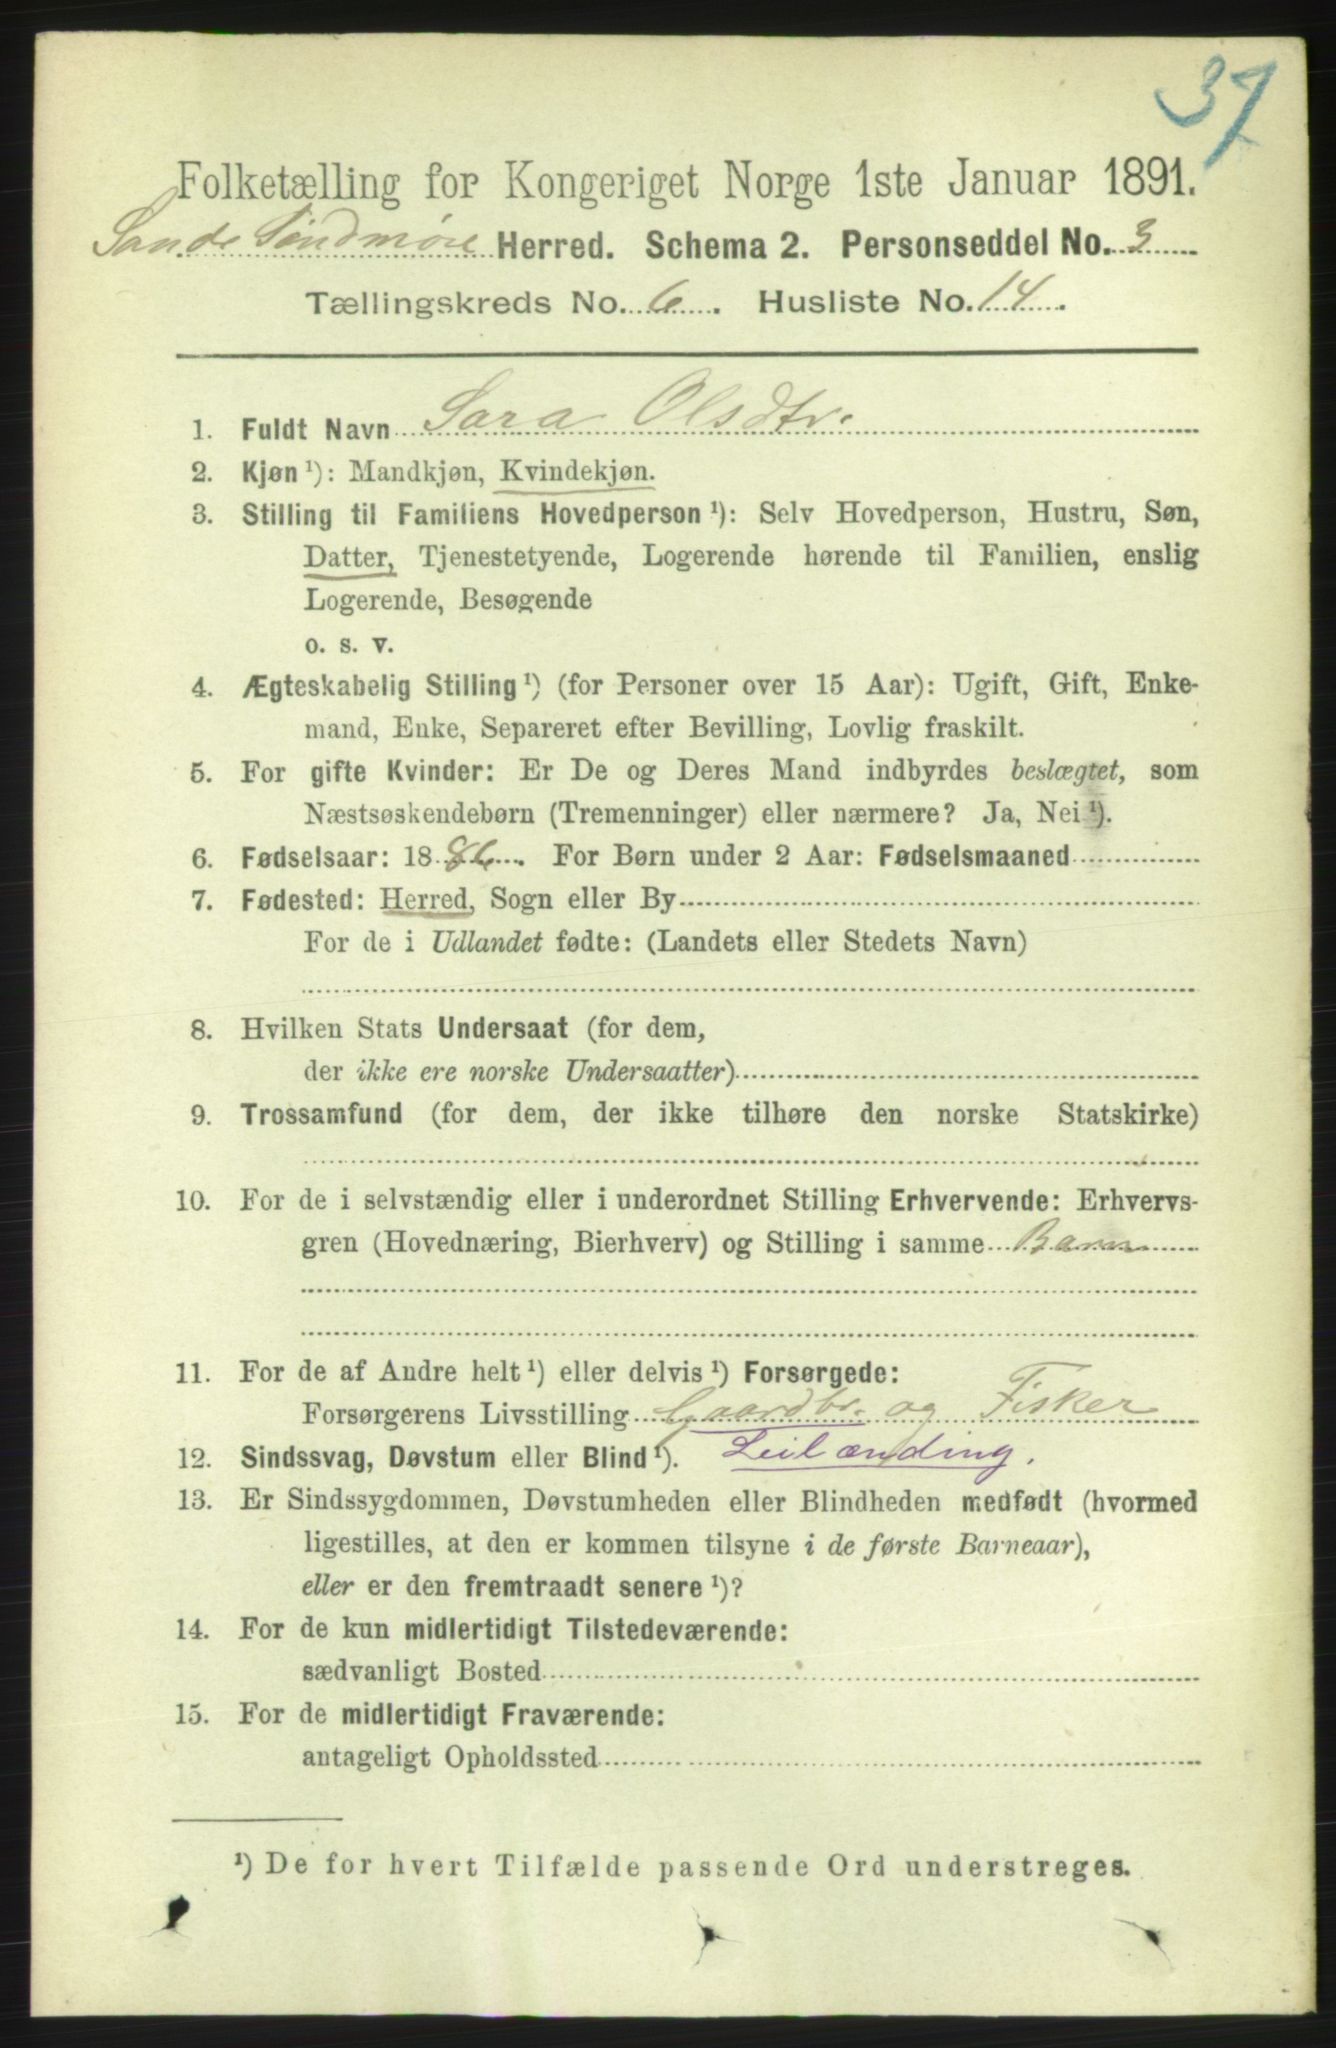 37
Folketælling for Kongeriget Norge 1ste Januar 1891.
Sande Søndmøre Herred. Schema 2. Personseddel No. 3
Tællingskreds No. 6. Husliste No. 14.
1. Fuldt Navn Sara Olsdtr.
2. Kjøn ¹): Mandkjøn, Kvindekjøn.
3. Stilling til Familiens Hovedperson ¹): Selv Hovedperson, Hustru, Søn,
Datter, Tjenestetyende, Logerende hørende til Familien, enslig
Logerende, Besøgende
o. s. v.
4. Ægteskabelig Stilling ¹) (for Personer over 15 Aar): Ugift, Gift, Enke-
mand, Enke, Separeret efter Bevilling, Lovlig fraskilt.
5. For gifte Kvinder: Er De og Deres Mand indbyrdes beslægtet, som
Næstsøskendebørn (Tremenninger) eller nærmere? Ja, Nei ¹).
6. Fødselsaar: 1886. For Børn under 2 Aar: Fødselsmaaned
7. Fødested: Herred, Sogn eller By
For de i Udlandet fødte: (Landets eller Stedets Navn)
8. Hvilken Stats Undersaat (for dem,
der ikke ere norske Undersaatter)
9. Trossamfund (for dem, der ikke tilhøre den norske Statskirke)
10. For de i selvstændig eller i underordnet Stilling Erhvervende: Erhvervs-
gren (Hovednæring, Bierhverv) og Stilling i samme Barn
11. For de af Andre helt ¹) eller delvis ¹) Forsørgede:
Forsørgerens Livsstilling Gaardbr. og Fisker
12. Sindssvag, Døvstum eller Blind ¹). Leilænding.
13. Er Sindssygdommen, Døvstumheden eller Blindheden medfødt (hvormed
ligestilles, at den er kommen tilsyne i de første Barneaar),
eller er den fremtraadt senere ¹)?
14. For de kun midlertidigt Tilstedeværende:
sædvanligt Bosted
15. For de midlertidigt Fraværende:
antageligt Opholdssted
¹) De for hvert Tilfælde passende Ord understreges.